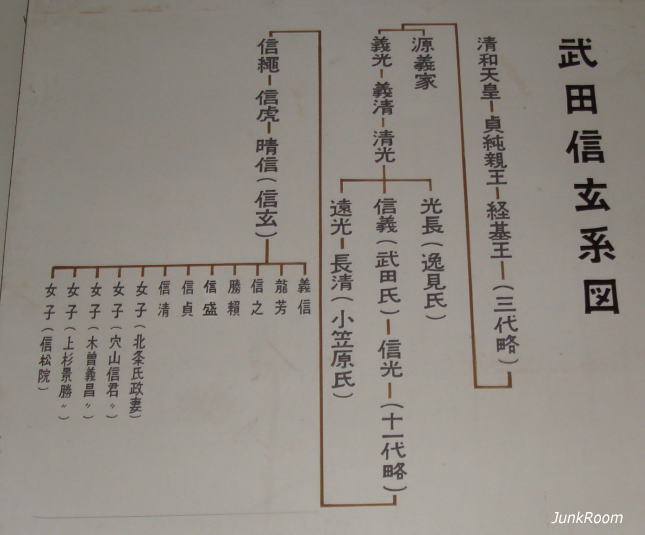 武田信玄系図
清和天皇ー貞純親王ー経基王ー(三代略)
源義家
義光ー義清ー清光
光長(逸見氏)
信義(武田氏)ー信光ー(十一代略)
遠光ー長清(小笠原氏)
信縄ー信虎ー晴信(信玄)
義信
龍芳
信之
勝頼
信盛
信貞
信清
女子(北条氏政妻)
女子(穴山信君〃)
女子(木曽義昌〃)
女子(上杉景勝〃)
女子(信松院)
JunkRoom